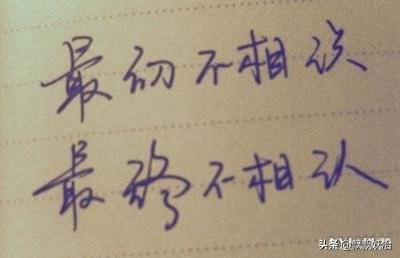 最初不相识
最终不相认
头条